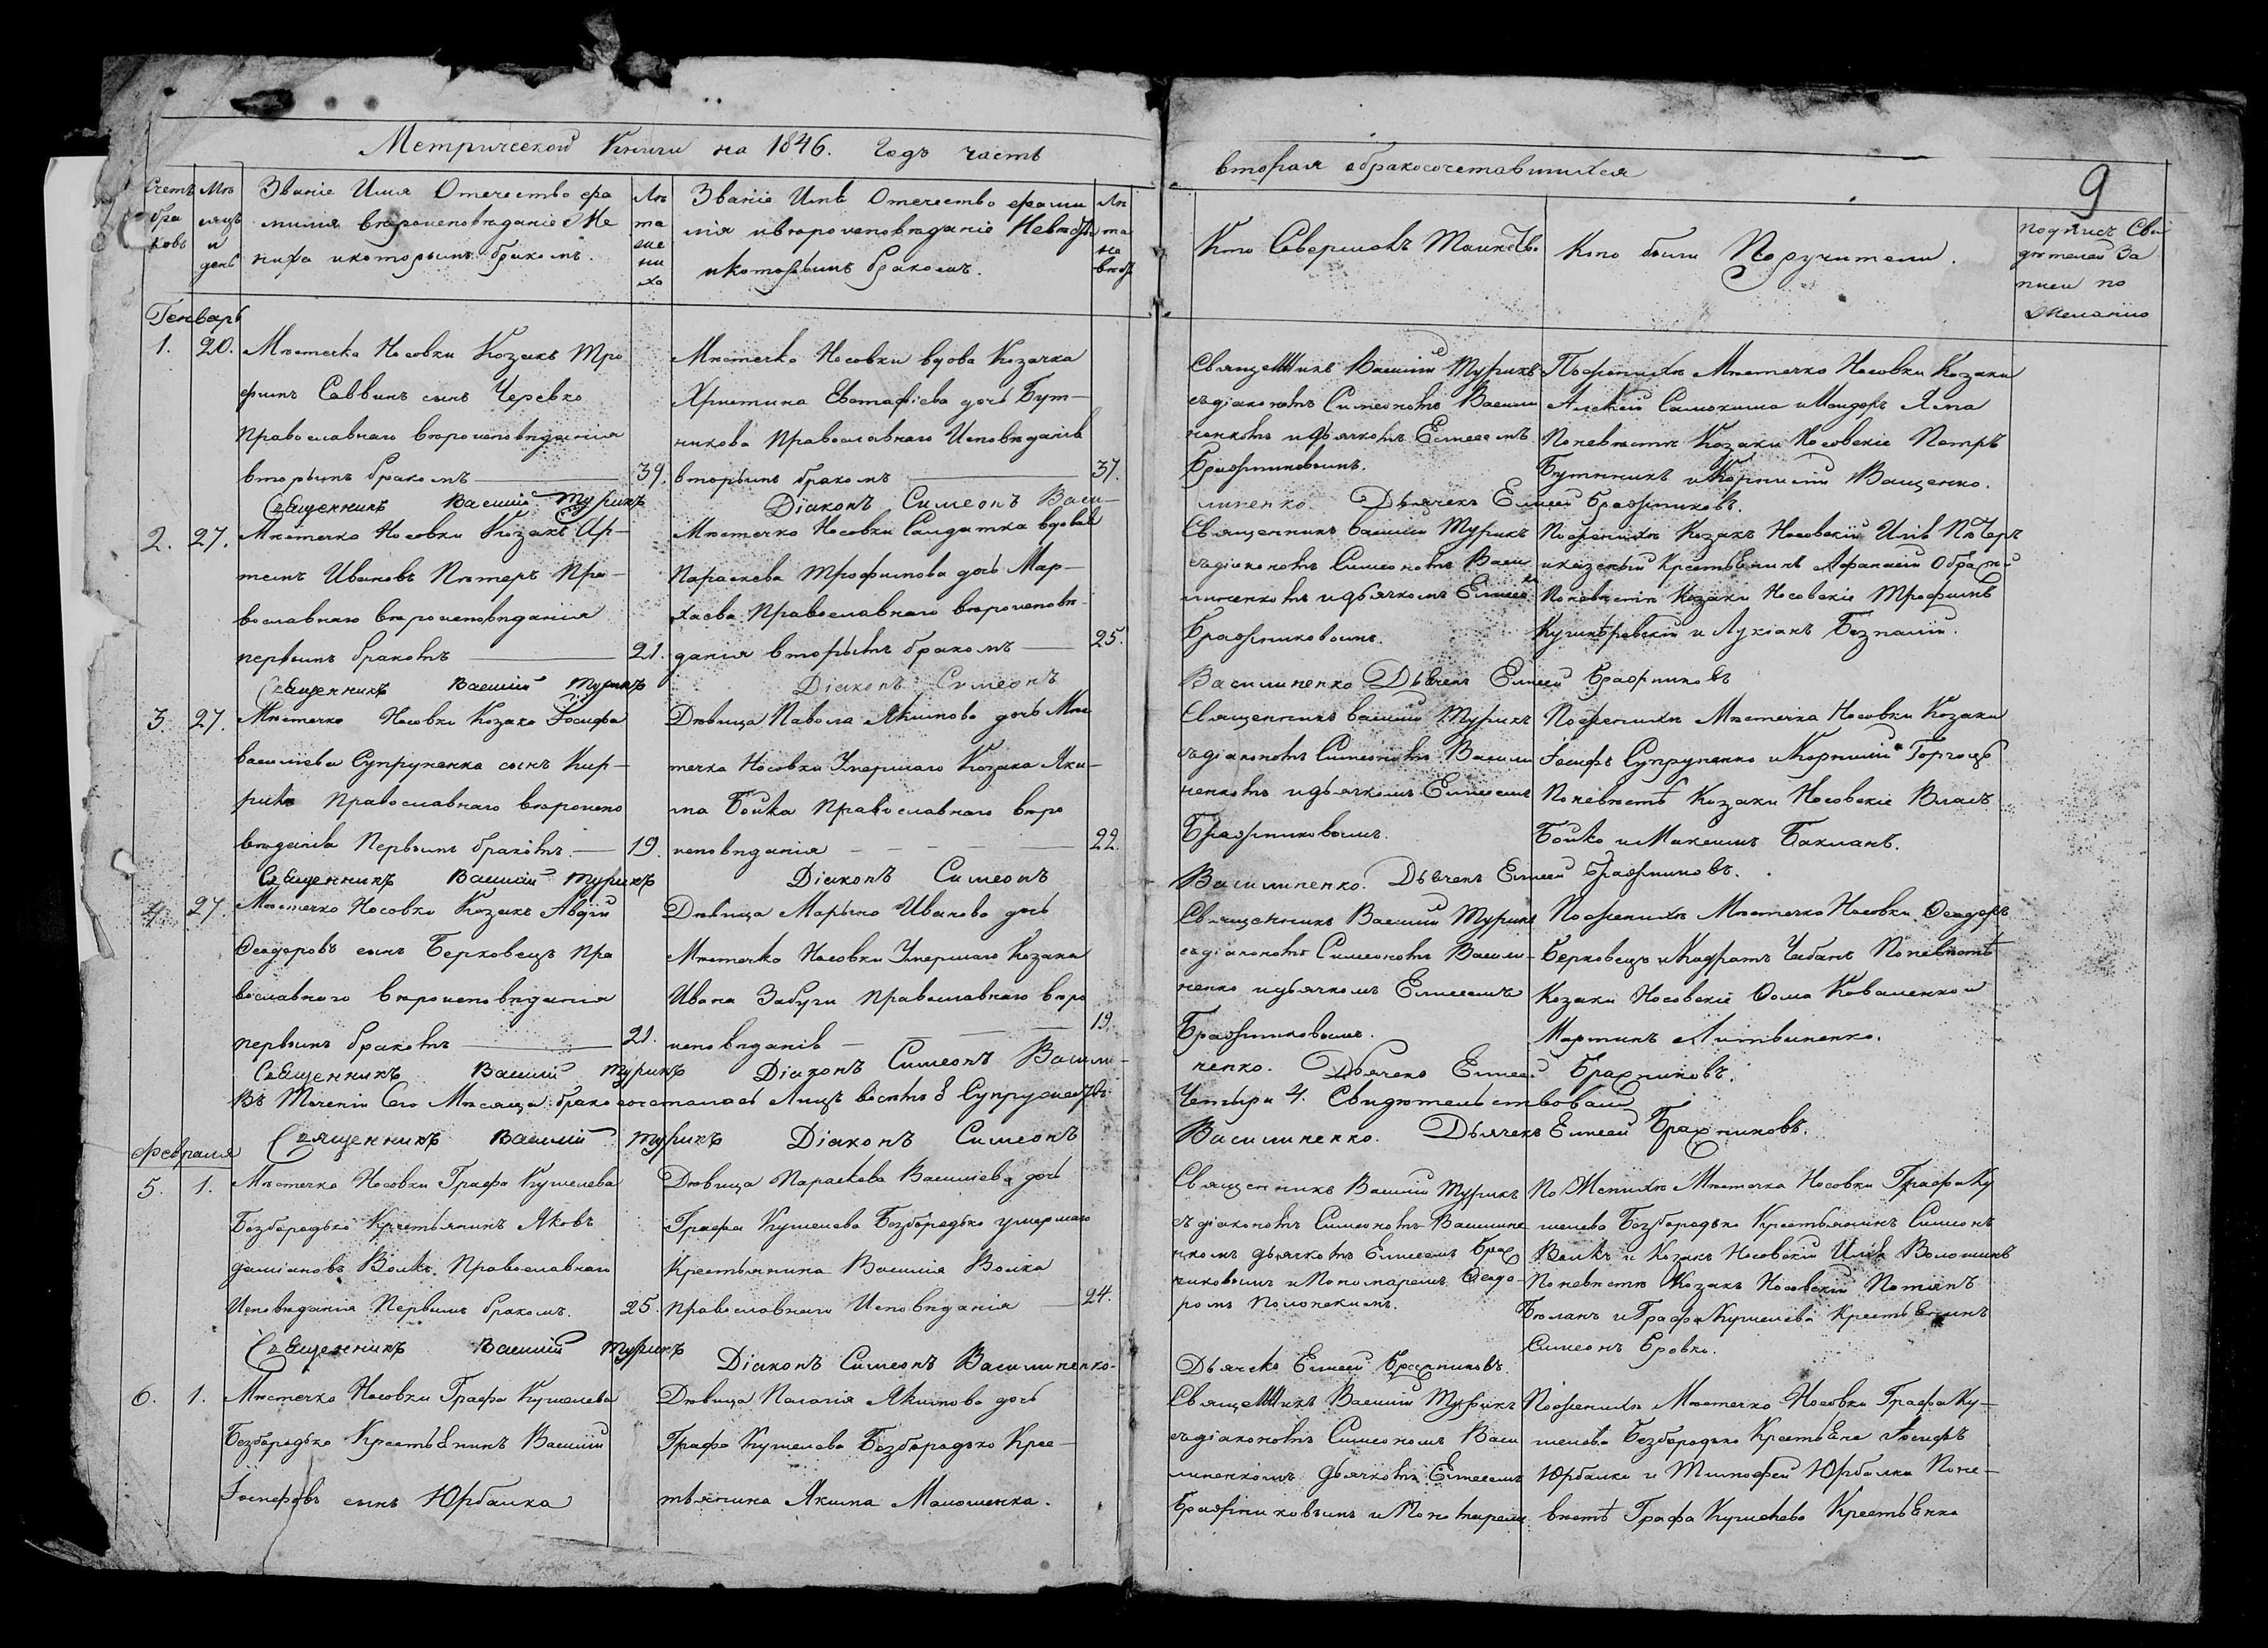 Метрической Книги на 1846. Годъ часть
вторая обракосочетавшихся
9
Счетъ бра ковъ
Мѣ сяцъ и день
Званіе Имя Отечество фа
милия вероисповеданіе Же
ниха и которымъ бракомъ.
Лѣ та же ни ха
Званіе Имѣ Отечество фами
лія и вероисповеданіе Невесты
и которымъ бракомъ.
Лѣ та не вѣс
Кто Совершалъ Таинство
Кто были Поручители.
подписъ Сви
дѣтелей За
писи по
Желанію
Генварь
1. 20.
Мѣстечка Носовки Козакъ Тро
фимъ Саввинъ сынъ Черевко
Православнаго вероисповѣданія
вторымъ бракомъ 39.
Мѣстечка Носовки вдова Козачка
Христина Евстафіева дочь Бут-
никова Православнаго Исповѣданія
вторымъ бракомъ 37.
Священникъ Василій Турикъ
съ діакономъ Симеономъ Васили
ненкомъ и дьячкомъ Елисеемъ
Бражниковымъ.
По женихѣ Мѣстечка Носовки Козаки
Алексій Самохиша и Сидоръ Яма
По невѣсте Козаки Носовскіе Петръ
Бутникъ и Корнилій Ващенко.
Священникъ Василій Турикъ Діаконъ Симеонъ Васи-
линенко. Дьячекъ Елисей Бражниковъ.
2. 27.
Мѣстечка Носовки Козакъ Ар-
темъ Ивановъ Пѣтеръ Пра-
вославнаго вероисповѣданія
первымъ бракомъ 21.
Мѣстечка Носовки Солдатка вдова
Параскева Трофимова дочь Мар-
хаева Православнаго вероисповѣ-
данія вторымъ бракомъ 25.
Священникъ Василій Турикъ
съ діакономъ Симеономъ Васи
линенкомъ и дьячкомъ Елисеемъ
Бражниковымъ.
По женихѣ Козакъ Носовскій Илія Пѣтеръ
и казеный Крестьянинъ Афанасій
По невѣстѣ Козаки Носовскіе Трофимъ
и Лукіанъ Безпалій.
Священникъ Василій Турикъ Діаконъ Симеонъ
Василиненко Дьячекъ Елисей Бражниковъ
3. 27.
Мѣстечка Носовки Козака Іосифа
Василіева Супруненка сынъ Кир-
рила Православнаго вѣроиспо
вѣданія Первымъ бракомъ. 19.
Дѣвица Павола Якимова дочь Мѣс
течка Носовки Умершаго Козака Яки-
ма Бойка Православнаго вѣро
исповѣданія 22.
Священникъ Василій Турикъ
съ діакономъ Симеономъ Васили
ненкомъ и дьячкомъ Елисеемъ
Бражниковымъ.
По женихѣ Мѣстечка Носовки Козаки
Іосифъ Супруненко и Корнилій
По невѣстѣ Козаки Носовскіе Власъ
Бойко и Максимъ Бакланъ.
Священникъ Василій Турикъ Діаконъ Симеонъ
Василиненко. Дьячекъ Елисей Бражниковъ.
4. 27.
Мѣстечка Носовки Козакъ Авдій
Ѳеодоровъ сынъ Берковецъ Пра
вославного вероисповѣданія
первымъ бракомъ 21.
Дѣвица Марына Иванова дочь
Мѣстечка Носовки Умершаго Козака
Ивана Забуги Православнаго вѣро
исповѣданія 19.
Священникъ Василій Турикъ
съ діакономъ Симеономъ Васили-
ненко и дьячкомъ Елисеемъ
Бражниковымъ.
По женихѣ Мѣстечка Носовки Ѳеодоръ
Берковецъ и Кодратъ Чабанъ По невѣстѣ
Козаки Носовскіе Ѳома Коваленко и
Мартинъ Литвиненко.
Священникъ Василій Турикъ Діаконъ Симеонъ Васили-
ненко. Дьячекъ Елисей Бражниковъ.
Въ Теченіи Сего Мѣсяца бракосочеталась Лицъ восемъ 8 Супружествъ
Четыри 4. Свидѣтельствовали
Священникъ Василій Турикъ Діаконъ Симеонъ
Василиненко. Дьячекъ Елисей Бражниковъ.
Февраля
5. 1.
Мѣстечка Носовки Графа Кушелева
Безбородько Крестьянинъ Яковъ
Даміановъ Волкъ Православнаго
Исповѣданія Первымъ бракомъ. 25.
Дѣвица Параскева Василіева дочь
Графа Кушелева Безбородько умершаго
Крестьянина Василія Волка
православнаго Исповѣданія 24.
Священникъ Василій Турикъ
съ діакономъ Симеономъ Василине
нкомъ дьячкомъ Елисеемъ Браж
никовымъ и Пономаремъ Ѳеодо-
ромъ Полонскимъ.
По Женихѣ Мѣстечка Носовки Графа Ку
шелева Безбородька Крестьянинъ Симеонъ
Волкъ и Козакъ Носовскій Илія Волошинъ
По невѣстѣ Козакъ Носовскій Потапъ
и Графа Кушелева Крестьянинъ
Симеонъ Бровко.
Священникъ Василій Турикъ Діаконъ Симеонъ Василиненко-
Дьячекъ Елисей Бражниковъ.
6. 1.
Мѣстечка Носовки Графа Кушелева
Безбородько Крестьянинъ Василій
Іосифовъ сынъ Юрбалка
Дѣвица Пелагія Якимова дочь
Графа Кушелева Безбородько Крес-
тьянина Якима Малошенка.
Священникъ Василій Турикъ
съ діакономъ Симеономъ Васи
линенкомъ дьячкомъ Елисеемъ
Бражниковымъ и Пономаремъ
По женихѣ Мѣстечка Носовки Графа Ку-
шелева Безбородько Крестьяне Іосифъ
Юрбалка и Тимофей Юрбалка По не-
вѣстѣ Графа Кушелева Крестьяне